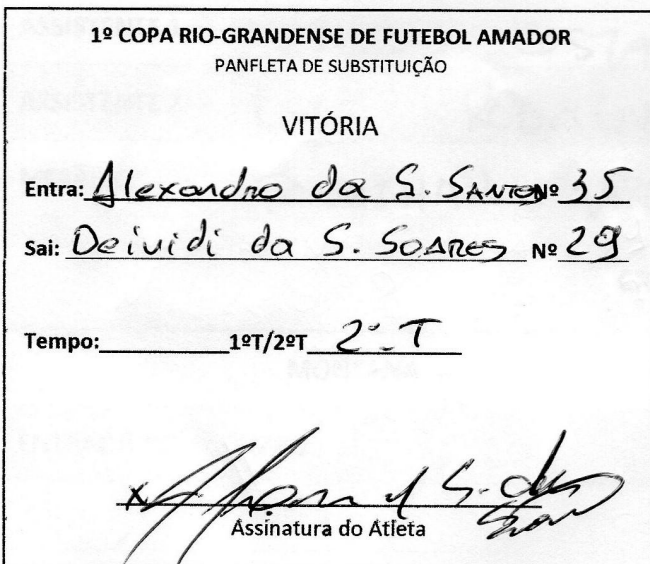 1º COPA RIO-GRANDENSE DE FUTEBOL AMADOR
PANFLETA DE SUBSTITUIÇÃO
VITÓRIA
Entra: Alexandro da S. SANTOS Nº 35
Sai: Deividi da S. SOARES Nº 29
Tempo:________1ºT/2ºT 2º T
X
Assinatura do Atleta